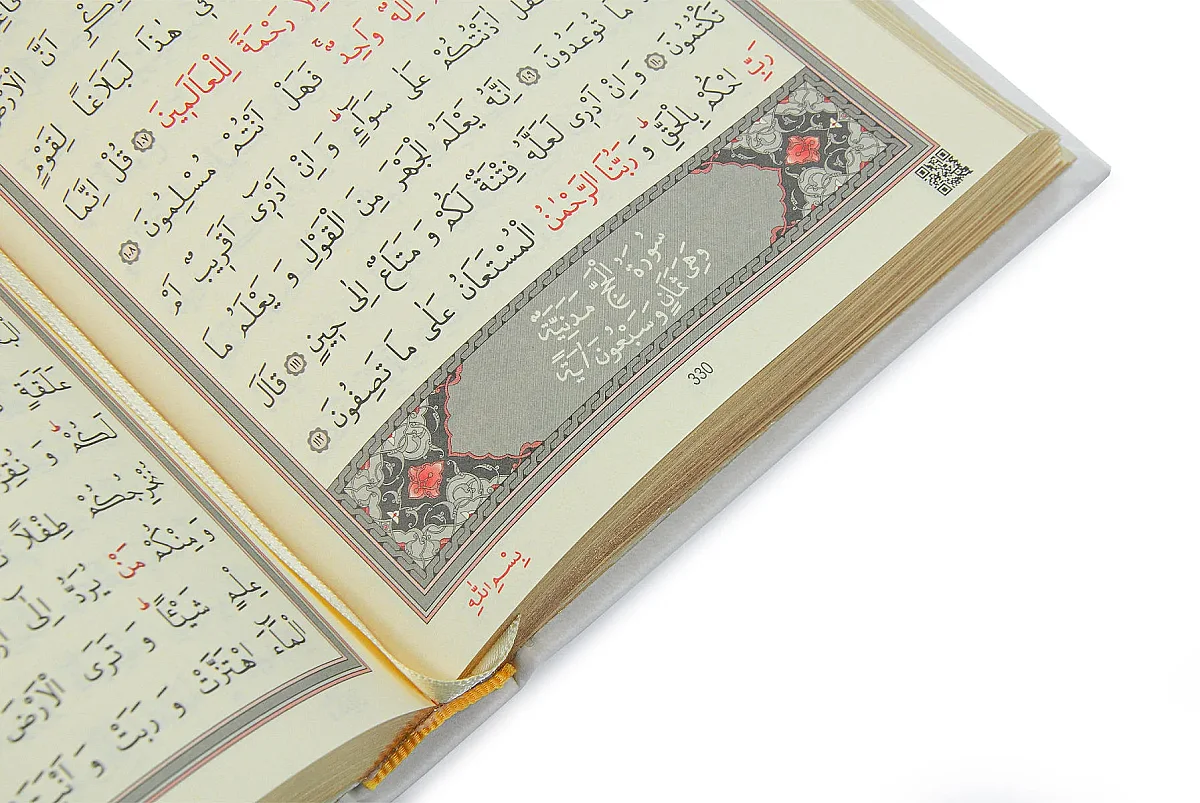 اَنَّ الْاَرْضَ
هٰذَا لَبَلَاغًا لِقَوْمٍ
رَحْمَةً لِلْعَالَمِينَ ١٠٧ قُلْ اِنَّمَا
اِلٰهٌ وَاحِدٌ فَهَلْ اَنْتُمْ مُسْلِمُونَ ١٠٨
اٰذَنْتُكُمْ عَلٰى سَوَٓاءٍ وَ اِنْ اَدْرٓى اَقَرِيبٌ اَمْ
مَا تُوعَدُونَ ١٠٩ اِنَّهُ يَعْلَمُ الْجَهْرَ مِنَ الْقَوْلِ وَ يَعْلَمُ مَا
تَكْتُمُونَ ١١٠ وَ اِنْ اَدْرٰى لَعَلَّهُ فِتْنَةٌ لَكُمْ وَ مَتَاعٌ اِلٰى حِينٍ ١١١ قَالَ
رَبِّ احْكُمْ بِالْحَقِّ وَ رَبُّنَا الرَّحْمٰنُ الْمُسْتَعَانُ عَلٰى مَا تَصِفُونَ ١١٢
سُورَةُ الْحَجِّ مَدَنِيَّةٌ
وَهِىَ ثَمَانٍ وَ سَبْعُونَ اٰيَةً
330
بِسْمِ اللّٰهِ
عَلَقَةٍ
لَكُمْ وَ
نُخْرِجُكُمْ طِفْلًا
وَ مِنْكُمْ مَنْ يُرَدُّ اِلٰٓى
عِلْمٍ شَيْـًٔا وَ تَرَى الْاَرْضَ
الْمَٓاءَ اهْتَزَّتْ وَ رَبَتْ وَ